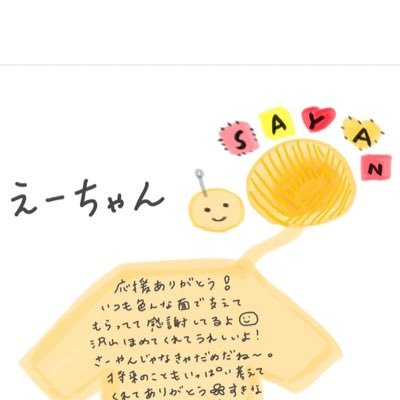 SAYAN
えーちゃん
応援ありがとう!
いつも色んな面で支えて
もらってて感謝してるよ
沢山ほめてくれてうれしいよ!
さーやんじゃなきゃだめだね〜。
将来のこともいっぱい考えて
くれてありがとう すきな